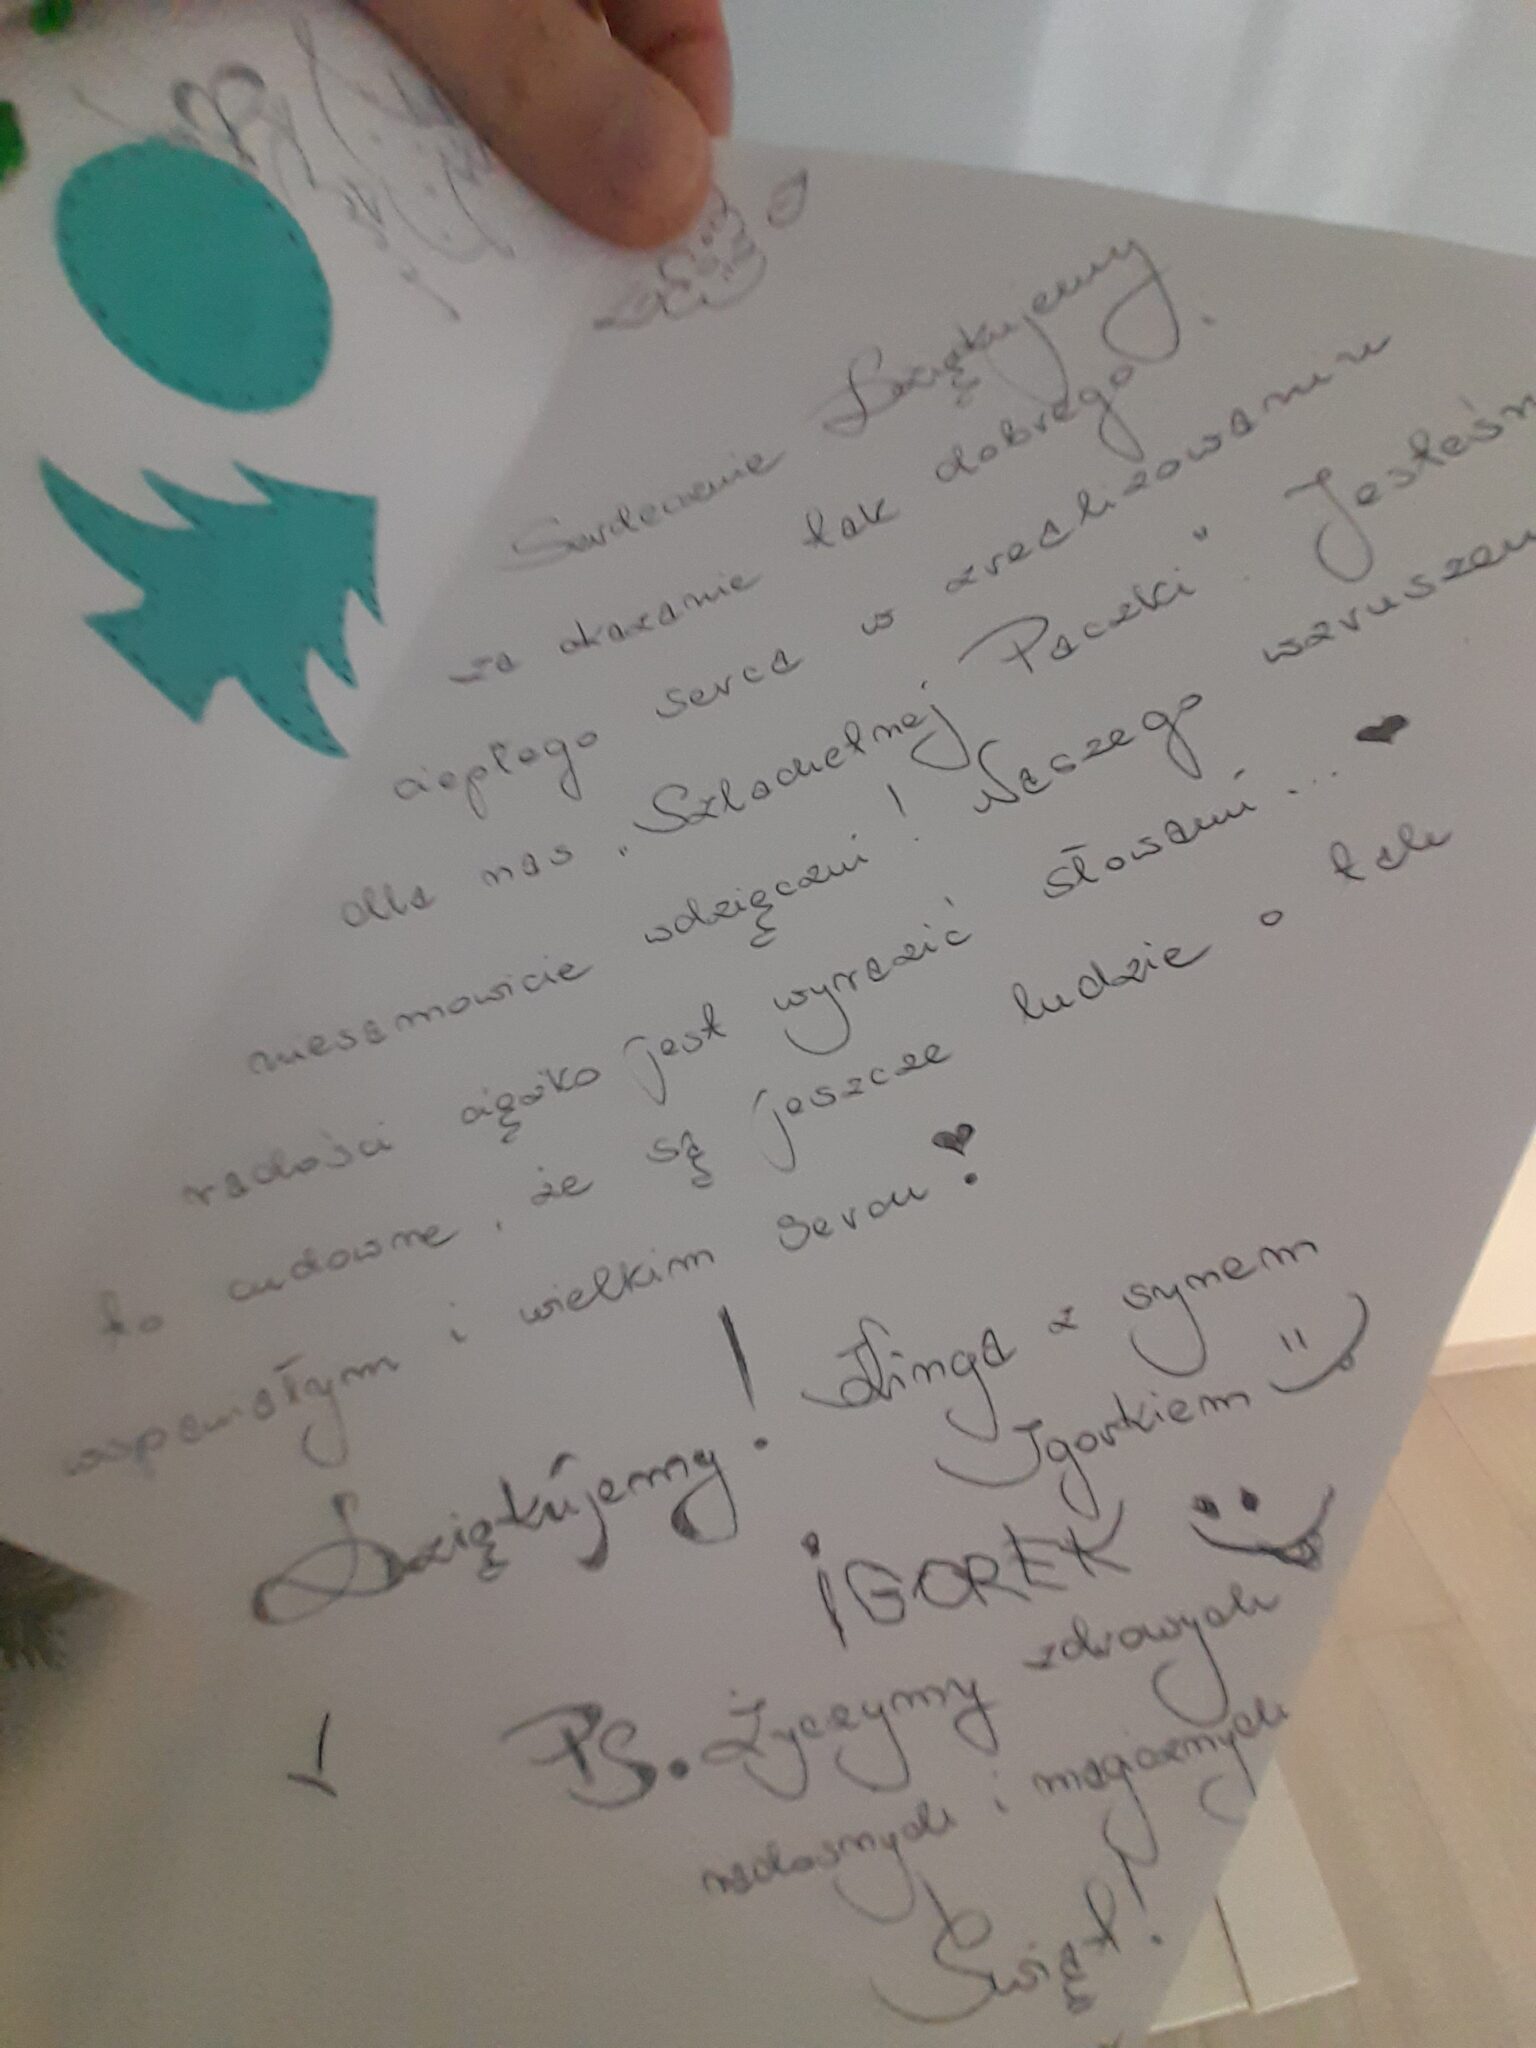 Serdecznie Dziękujemy
za okazanie tak dobrego,
ciepłego serca w zrealizowaniu
dla nas „Szlachetnej Paczki". Jesteśm
niesamowicie wdzięczni! Naszego wzruszen
radości ciężko jest wyrazić słowami... ♥
to cudowne, że są jeszcze ludzie o tak
wspaniałym i wielkim sercu!
Dziękujemy! Kinga z synem
Igorkiem
IGOREK
PS. Życzymy zdrowych
radosnych i magicznych
Świąt!